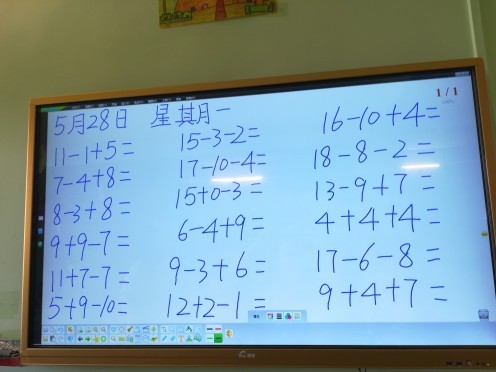 5月28日 星期一
11-1+5=
7-4+8=
8-3+8=
9+9-7=
11+7-7=
5+9-10=
15-3-2=
17-10-4=
15+0-3=
6-4+9=
9-3+6=
12+2-1=
1/1
16-10+4=
18-8-2=
13-9+7=
4+4+4=
17-6-8=
9+4+7=